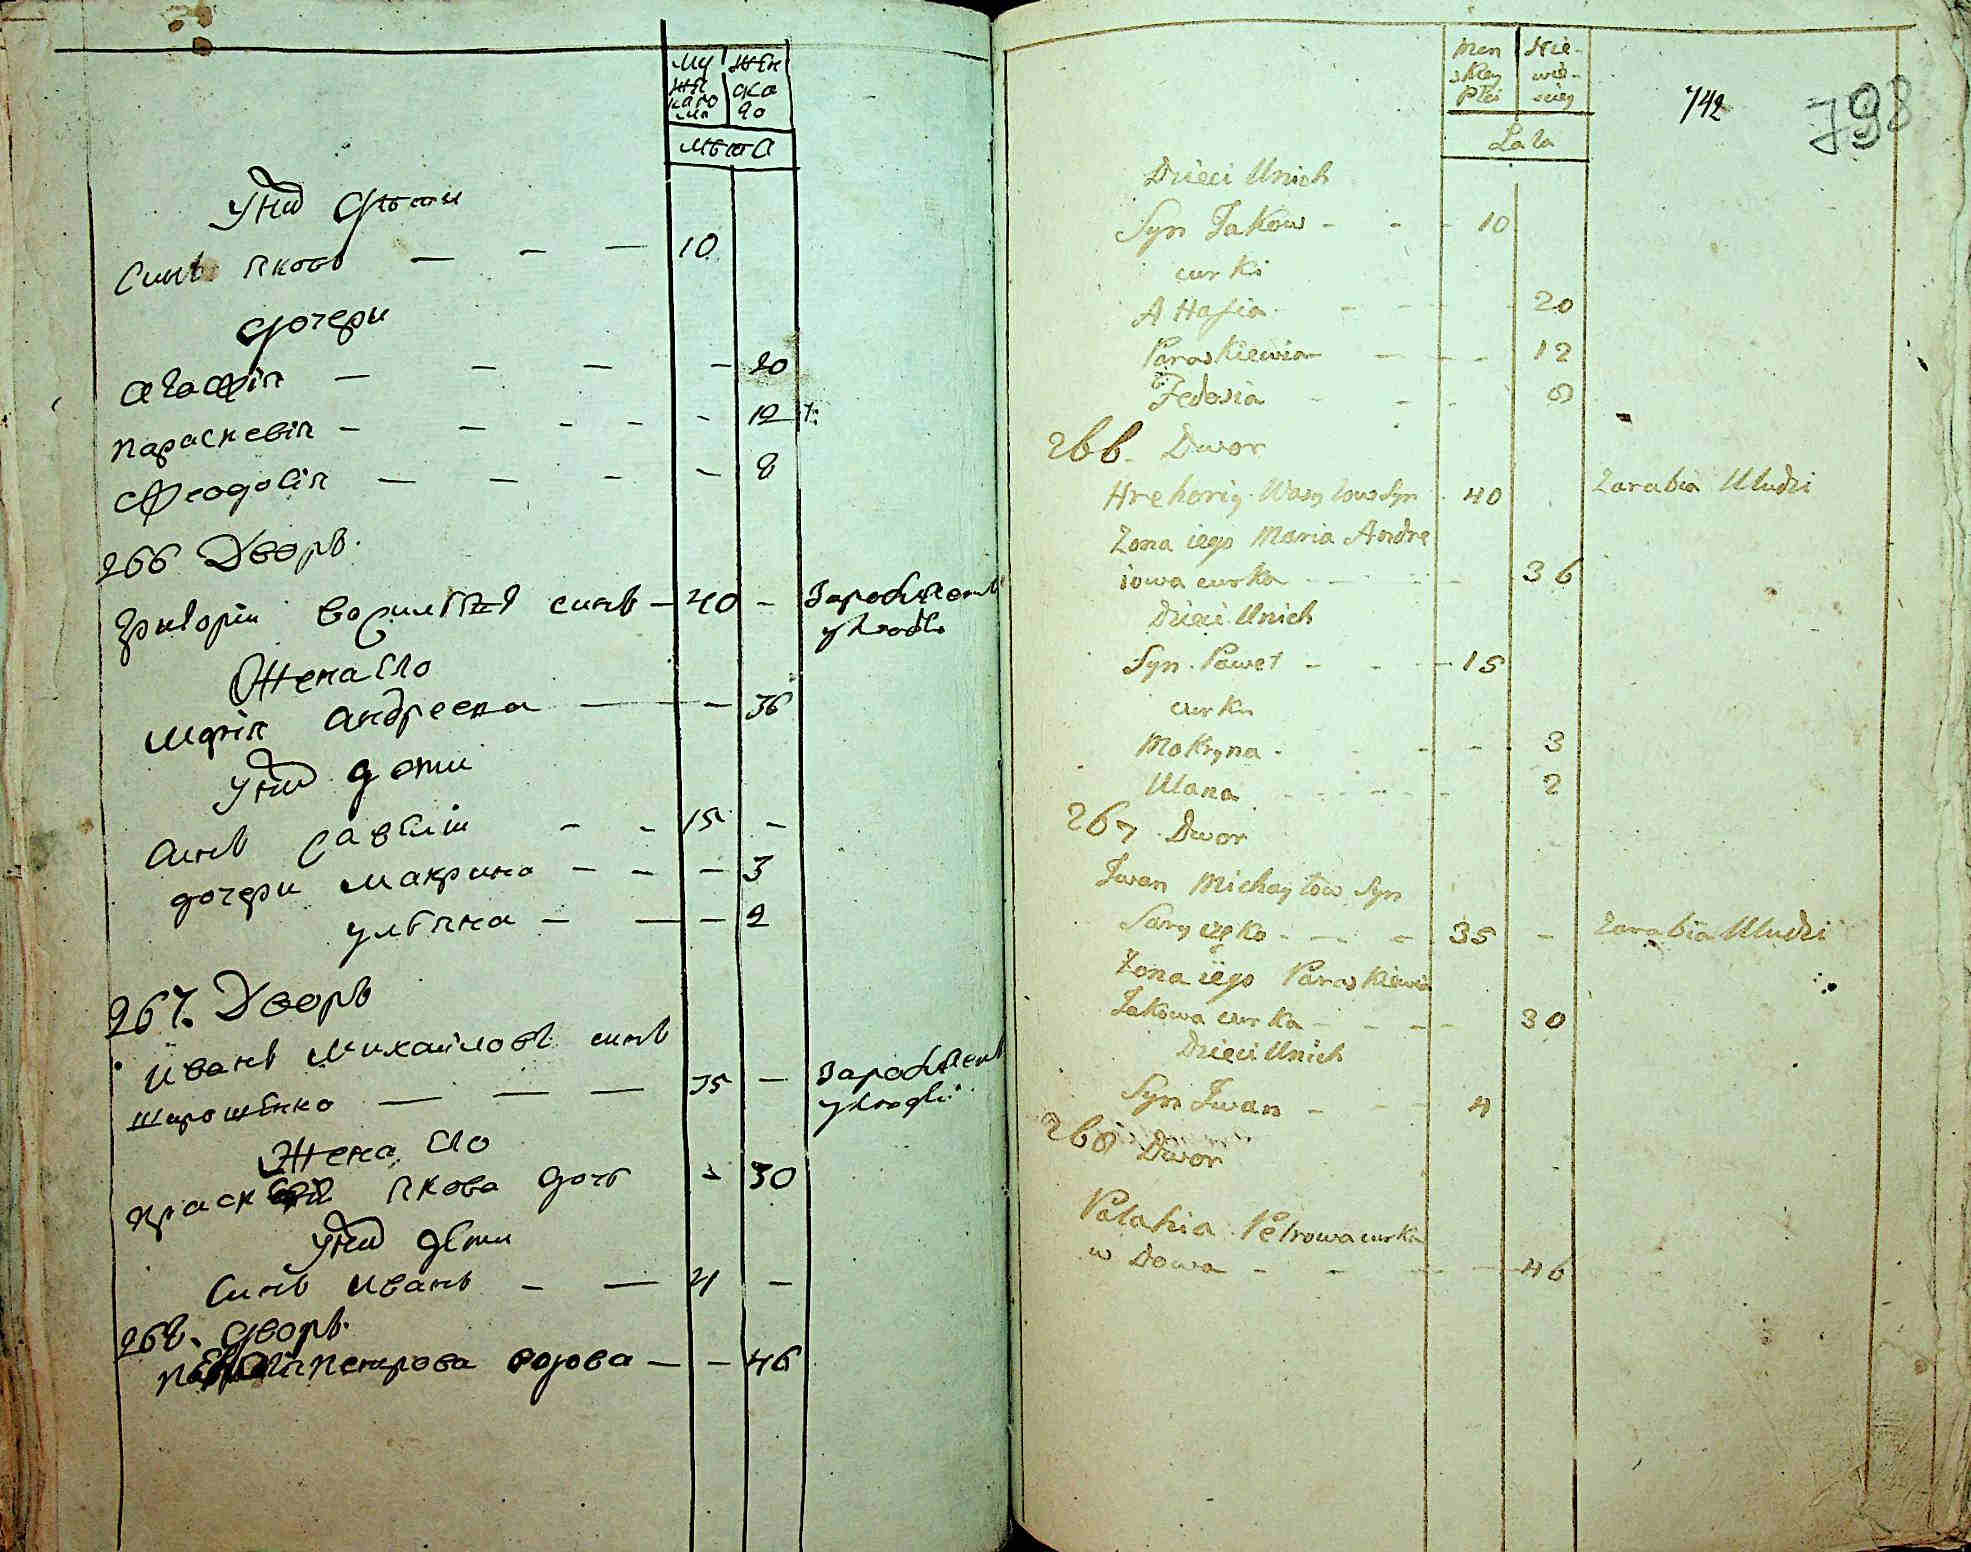 Му жен
жес ска
каго го
лѣта
У них дѣти
Синъ Яковъ — — — 10
дочери
Агафія — — — — 20
Параскевія — — — — — 12
Феодосія — — — — — 8
266 Дворъ.
Григорій Василіевъ синъ — 40 — Заробляетъ
у людей
Жена Его
Марія Андреева — — — 36
У них дети
Синъ Савелій — — 15 —
дочери Макрина — — — 3
Улияна — — — 2
267. Дворъ
Иванъ Михайловъ синъ
Шарошенко — — — 35 — Заробляетъ
у людей
Жена Его
Праскевія Якова дочь — 30
У них дѣти
Синъ Иванъ — — 4 —
268. дворъ.
Петрова вдова — — 46
Men Nie-
skiey wie-
Płci sciey
Lata
742
798
Dzieci Unich
Syn Jakow - - - 10
curki
A Hafia - - - - 20
Paraskiewia - - - 12
Fedosia - - - 8
266. Dwor
Hrehoriy Wasylow Syn 40 Zarabia Uludzi
Zona iego Maria Andre
iowa curka - - - - 36
Dzieci Unich
Syn Paweł - - - 15
curki
Makryna - - - - 3
Ulana - - - - - 2
267 Dwor
Jwan Michayłow Syn
- - - - 35 - Zarabia Uludzi
Zona iego Paraskiewia
Jakowa curka - - - - 30
Dzieci Unich
Syn Jwan - - - 4
268 Dwor
Palahia Petrowa curka
w Dowa - - - - 46